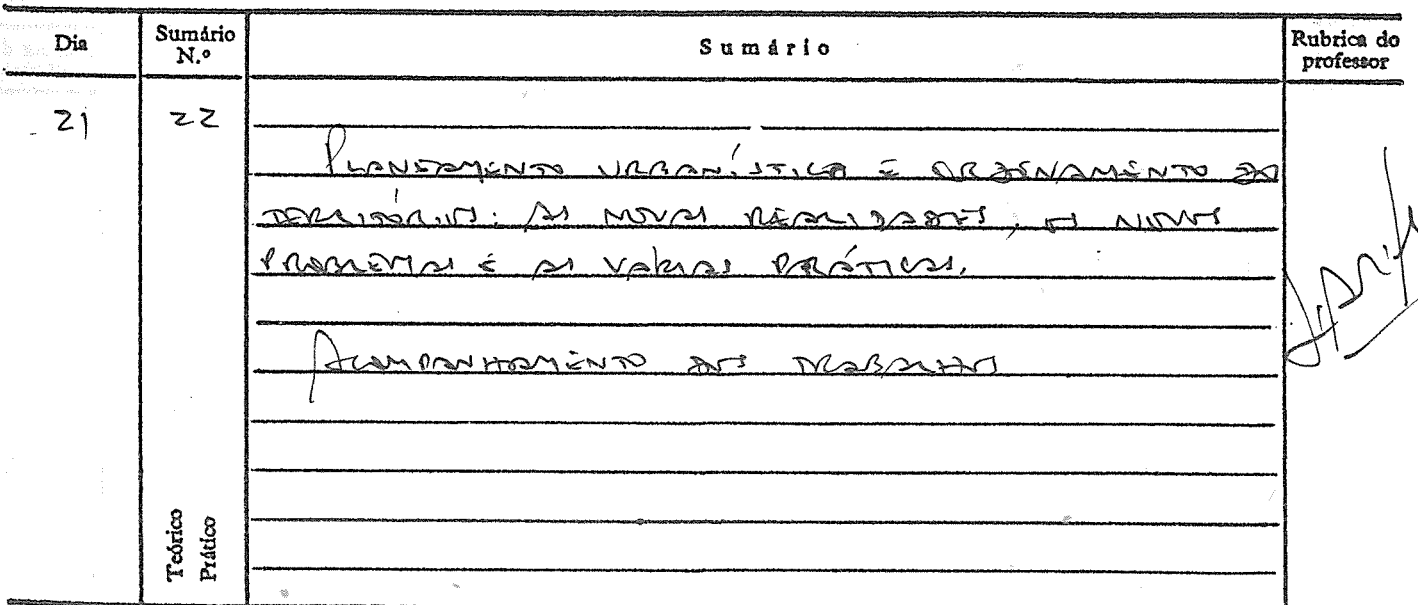 Dia
Sumário
N.º
Sumário
Rubrica do
professor
21
22
PLANEAMENTO URBANÍSTICO E ORDENAMENTO DO
TERRITÓRIO: AS NOVAS REALIDADES, OS NOVOS
PROBLEMAS E AS VÁRIAS PRÁTICAS.
ACOMPANHAMENTO DOS TRABALHOS
Teórico
Prático